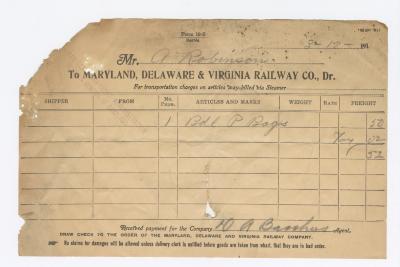 Form 19-S
3-12- 191
Mr. A Robinson
To MARYLAND, DELAWARE & VIRGINIA RAILWAY CO., Dr.
For transportation charges on articles way-billed via Steamer
SHIPPER FROM No. Pkgs. ARTICLES AND MARKS WEIGHT RATE FREIGHT
1 Bdl P Bags 50
Tax 02
52
Received payment for the Company Agent.
DRAW CHECK TO THE ORDER OF THE MARYLAND, DELAWARE AND VIRGINIA RAILWAY COMPANY.
No claims for damages will be allowed unless delivery clerk is notified before goods are taken from wharf, that they are in bad order.